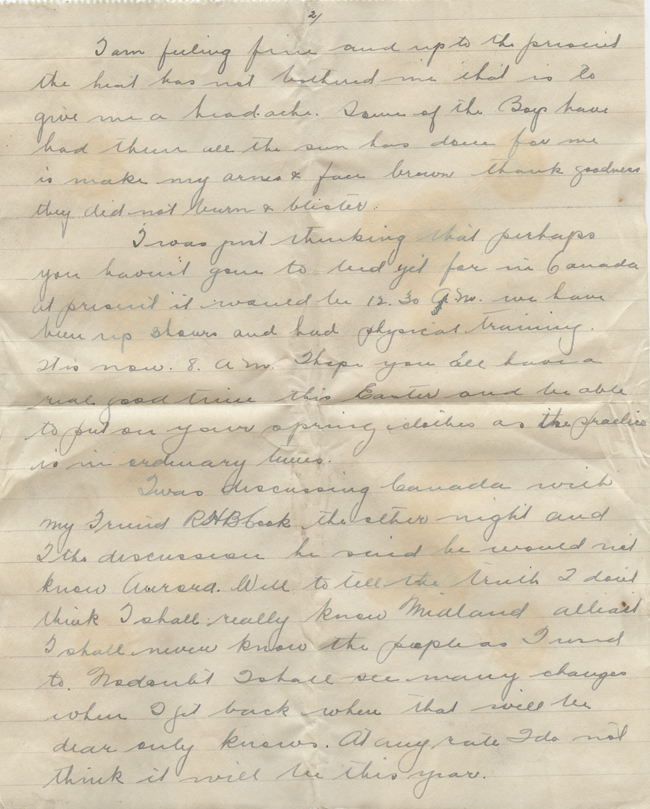 2/
I am feeling fine and up to the present
the heat has not bothered me that is to
give me a headache. Some of the Boys have
had them all the sun has done for me
is make my arms & face brown thank goodness
they did not burn & blister.
I was just thinking that perhaps
you haven't gone to bed yet for in Canada
at present it would be 12.30 A.M. we have
been up 3 hours and had physical training.
It is now. 8. A.M. I hope you all have a
real good time this Easter and be able
to put on your spring clothes as the practice
is in ordinary times.
I was discussing Canada with
my Friend RHB Cook the other night and
I the discussion he said he would not
know Aurora. Well to tell the truth I don't
think I shall really know Midland atleast
I shall never know the people as I used
to. Nodoubt I shall see many changes
when I get back when that will be
dear only knows. At any rate I do not
think it will be this year.